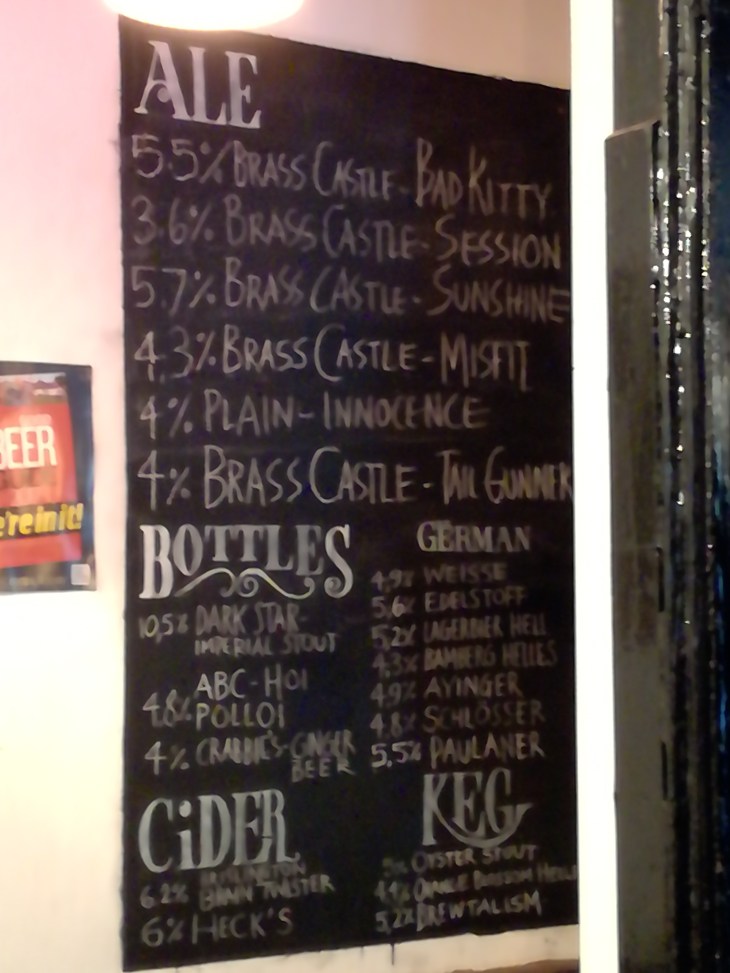 ALE
5.5% BRASS CASTLE - BAD KITTY
3.6% BRASS CASTLE - SESSION
5.7% BRASS CASTLE - SUNSHINE
4.3% BRASS CASTLE - MISFIT
4% PLAIN - INNOCENCE
4% BRASS CASTLE - TAIL GUNNER
BOTTLES
10,5% DARK STAR-
IMPERIAL STOUT
ABC-HOI
4.8% POLLOI
4% CRABBIE'S-GINGER
BEER
GERMAN
4,9% WEISSE
5,6% EDELSTOFF
5,2% LAGERBIER HELL
4,3% BAMBERG HELLES
4,9% AYINGER
4,8% SCHLÖSSER
5,5% PAULANER
CiDER
6.2% TWISTER
6% HECK'S
KEG
5% OYSTER STOUT
BLOSSOM
5,2% BREWTALISM
BEER
e're in it!